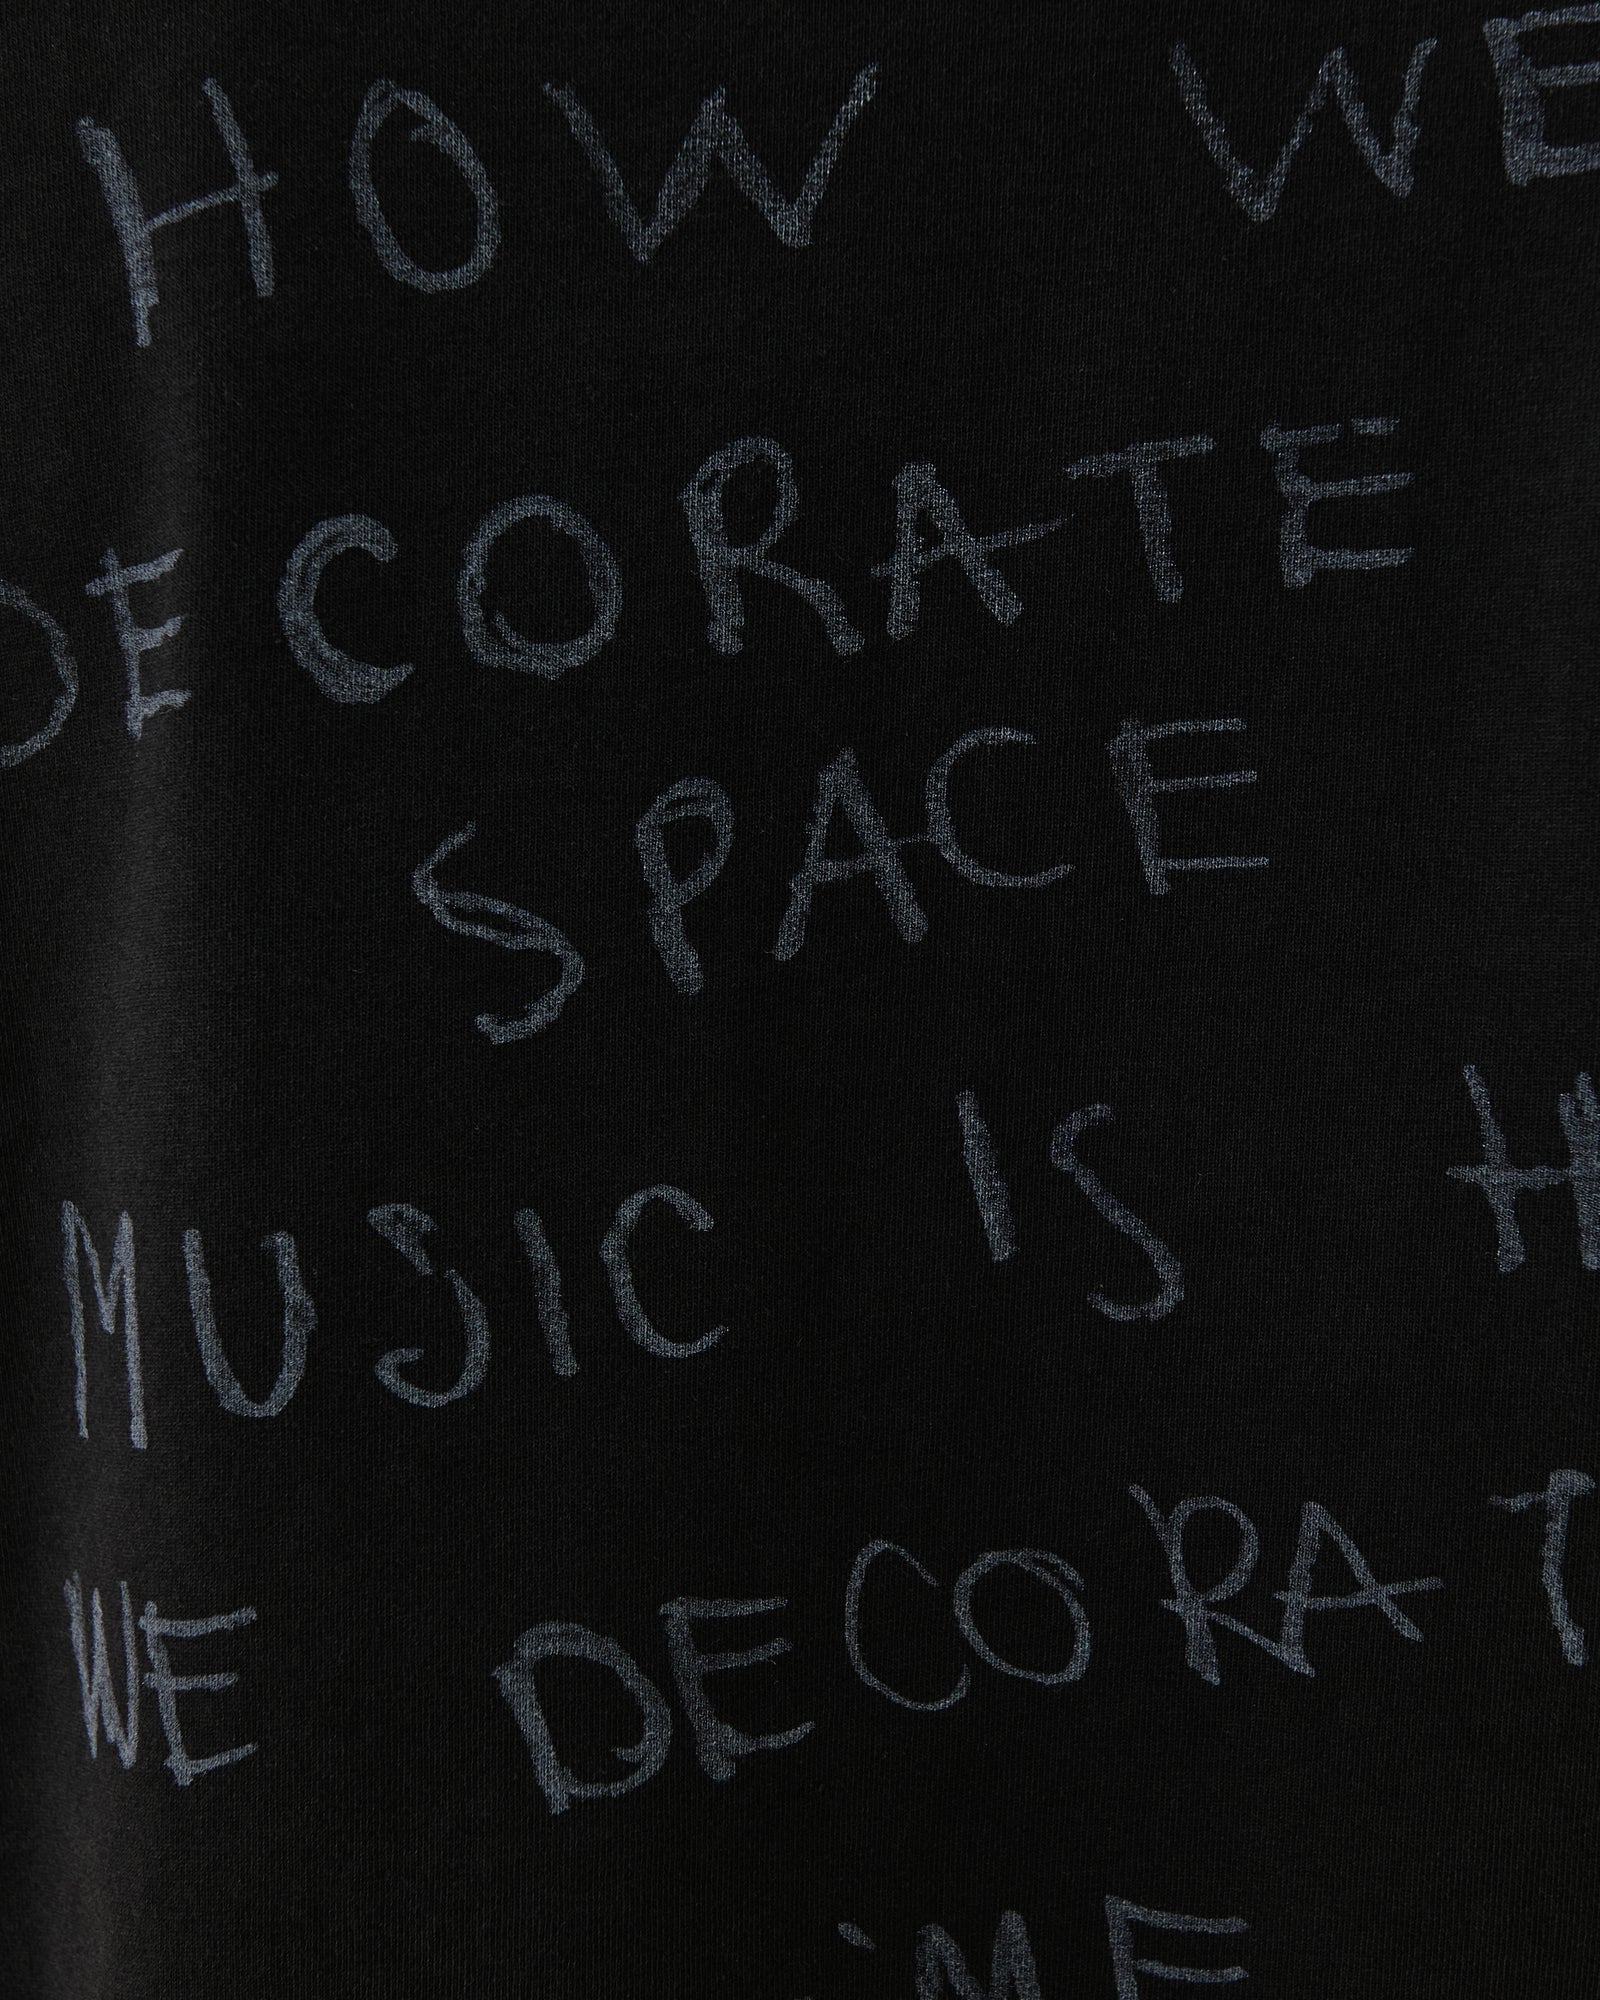 HOW WE
DECORATE
SPACE
MUSIC IS H
WE DECORAT